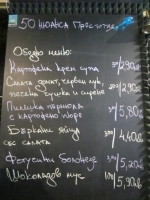 50 нюанса Престиж
Обедно меню:
Картофена крем супа 300/2,90лв
Салата домат, червен лук,
печена чушка и сирене 300/2,90лв
Пилешка пържола
с картофено пюре 5,80лв
Бъркани яйца
със салата 4,40лв
Фетучини Болонезе 5,20лв
Шоколадов мус 5,90лв